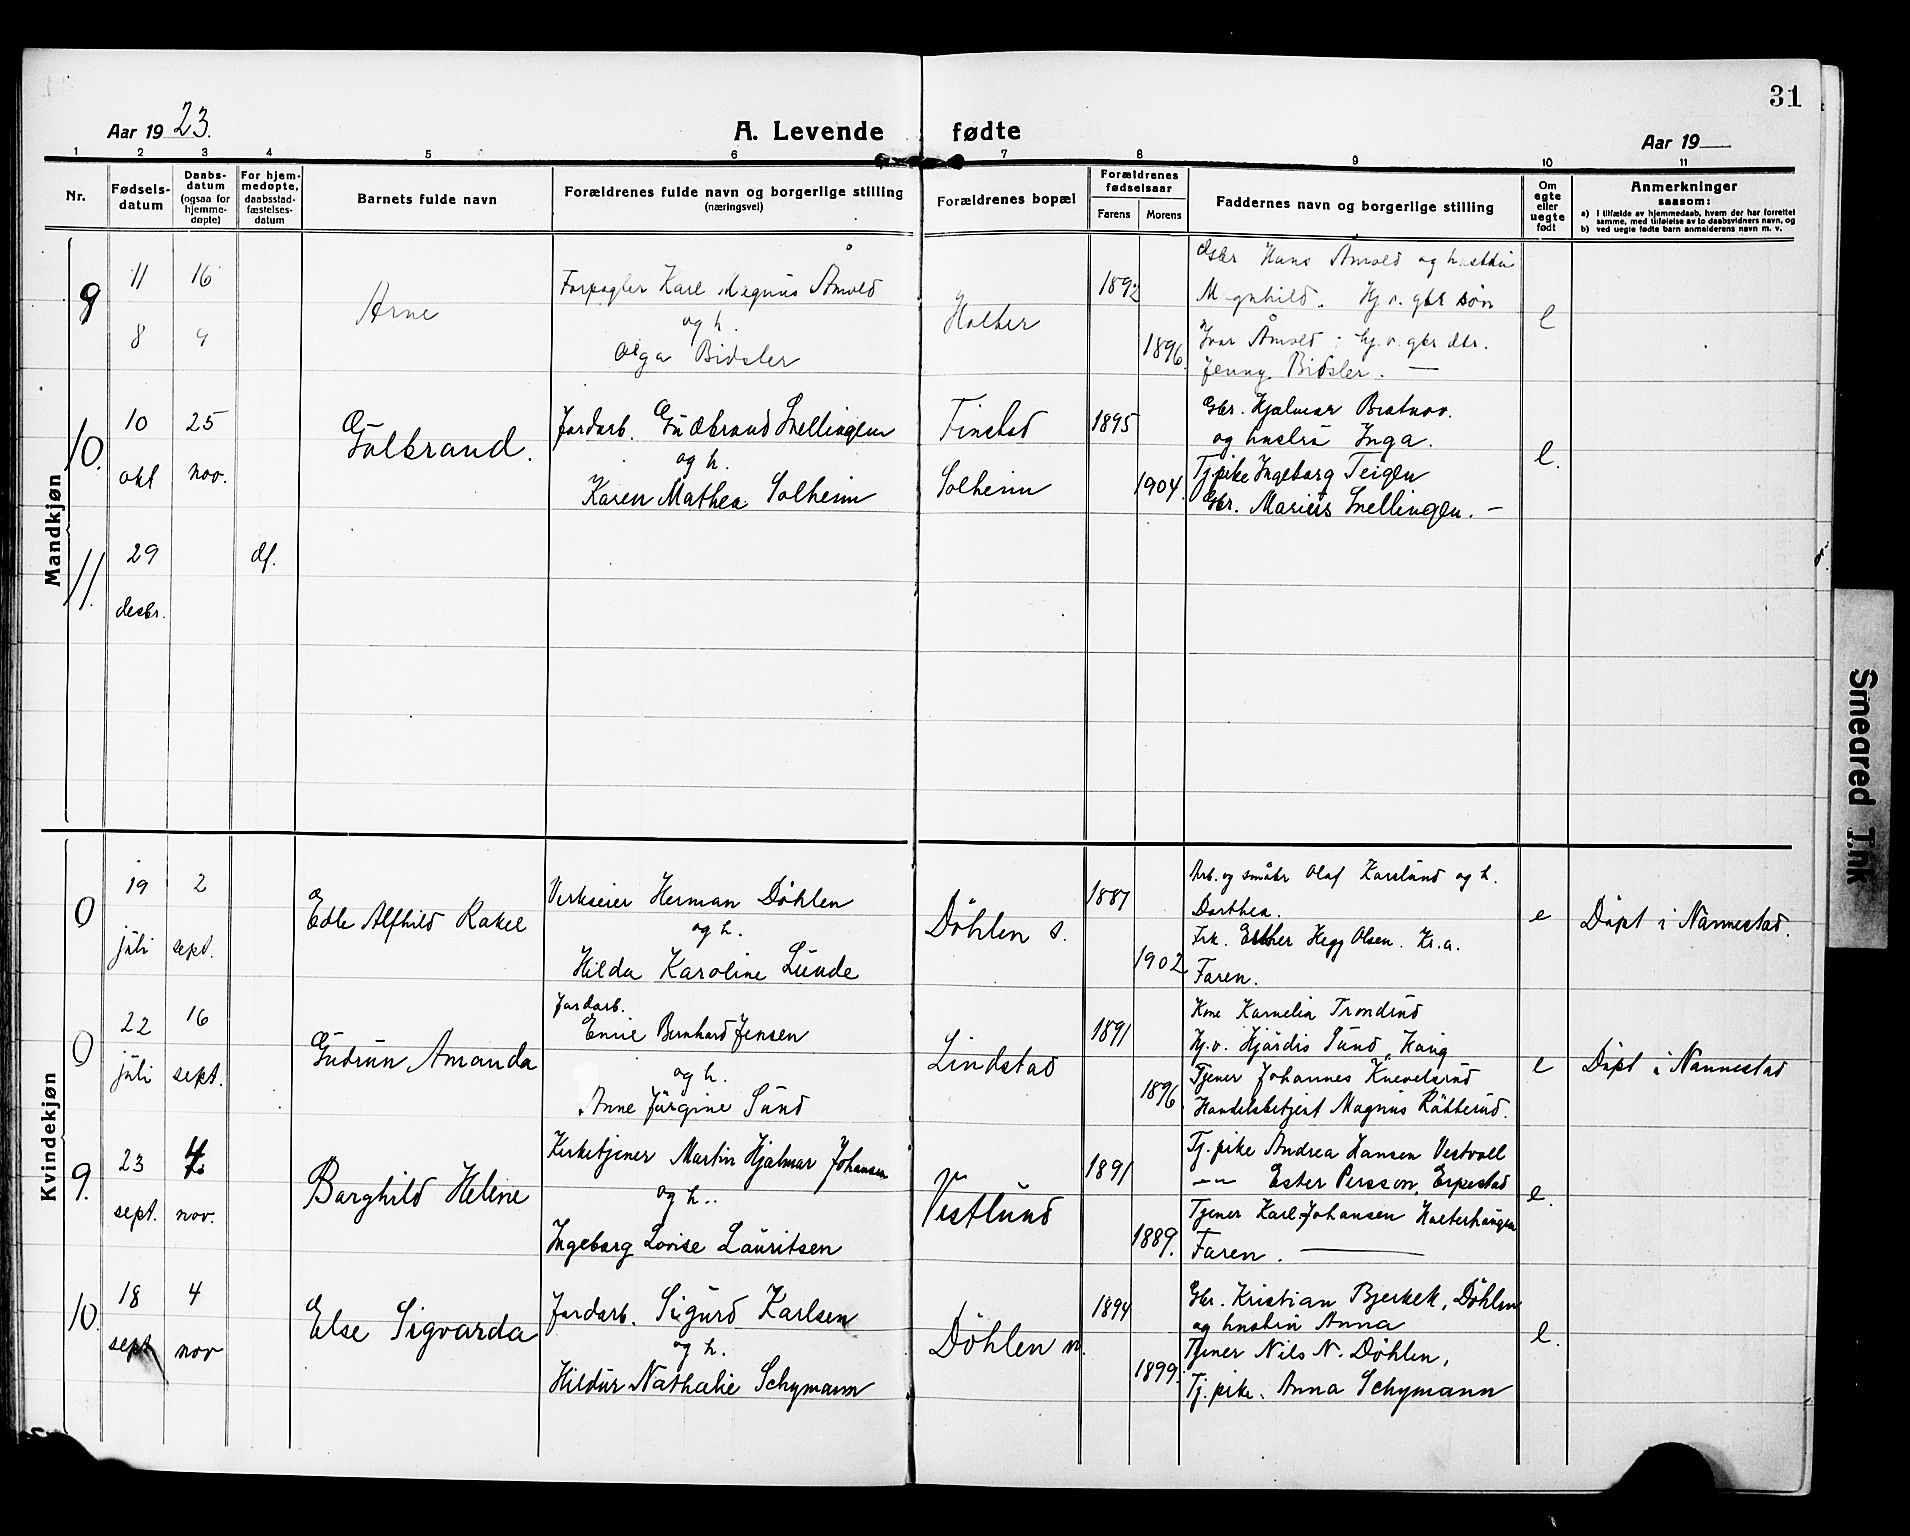 31
Aar 1923.
A. Levende fødte
Aar 19
1 2 3 4 5 6 7 8 9 10 11
Nr.
Fødsels-
datum
Daabs-
datum
(ogsaa for
hjemme-
døpte)
For hjem-
medøpte,
daabsstad-
fæstelses-
datum
Barnets fulde navn
Forældrenes fulde navn og borgerlige stilling
(næringsvei)
Forældrenes bopæl
Forældrenes
fødselsaar
Farens Morens
Faddernes navn og borgerlige stilling
Om
egte
eller
uegte
født
Anmerkninger
saasom:
a) I tilfælde av hjemmedaab, hvem der har forrettet
samme, med tilføielse av to daabsvidners navn, og
b) ved uegte fødte barn anmelderens navn m. v.
Mandkjøn
9
11
8
16
9
Arne
Forpagter Karl Magnus Åmold
og h.
Olga Bidsler
Holter
1892
1896.
Gbr Hans Åmold og hustru
Magnhild. Hj.v. gbr søn
Ivar Åmold; hj.v. gbr dtr.
Jenny Bidsler. —
e
10.
10
okt
25
nov.
Gulbrand.
Jordarb. Gudbrand Snellingen
og h.
Karen Mathea Solheim
Finstad
Solheim
1895
1904.
Gbr. Hjalmar Bratnov.
og hustru Inga.
Tj.pike Ingeborg Teigen
Gbr. Marius Snellingen. —
e.
11.
29
desbr.
df.
Kvindekjøn
0
19
juli
2
sept.
Edle Alfhild Rakel
Verkseier Herman Döhlen
og h.
Hilda Karoline Lunde
Döhlen s.
1887
1902
Arb. og småbr Olaf Karslund og h.
Dorthea.
Frk. Esther Hegg Olsen. Kr.a.
Faren.
e
Döpt i Nannestad.
0
22
juli
16
sept.
Gudrun Amanda
Jordarb.
Enrie Bernhard Jensen
og h.
Anne Jörgine Sund
Lindstad
1891
1896.
Kone Karnelia Trondrud
Hj.v. Hjördis Sund, Haug
Tjener Johannes Knevelsrud
Handelsbetjent Magnus Rötterud.
e
Döpt i Nannestad
9.
23
sept.
4
nov.
Borghild Helene
Kirketjener Martin Hjalmar Johansen
og h..
Ingeborg Lovise Lauritsen
Vestlund
1891
1889.
Tj. pike Andrea Hansen Vestvoll
—"— Ester Persson, Erpestad
Tjener Karl Johansen Holterhaugen
Faren. —
e.
10.
18
sept
4
nov
Else Sigvarda
Jordarb. Sigurd Karlsen
og h.
Hildur Nathalie Schymann
Döhlen n.
1894
1899.
Gbr. Kristian Bjerkek, Döhlen
og hustru Anna
Tjener Nils N. Döhlen,
Tj. pike. Anna Schymann
e.
Smeared Ink